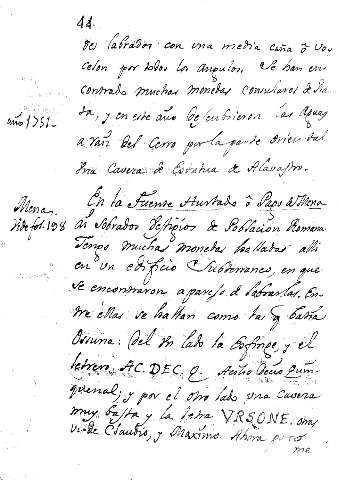 44.
des labrados con una media caña ô vos
celon por todos los angulos. Se han en
contrado muchas monedas consulares de Pla
ta, y en este año descubrieron las Aguas
año 1751-
a raiz del Cerro por la parte oriental
Una Cavera de Estatua de Alavastro.
En la Fuente Hurtado ô Pago de Mena
Mena.
Vide fol. 198
ai sobrados vestigios de Poblacion Romana
Tengo muchas monedas halladas alli
en un edificio Subterraneo, en que
se encontraron a parejo de labrarlas. En
tre ellas se hallan como las q batia
Ossuna: del un lado la Esfinge, y el
letrero, AC. DEC. Q. Acilio Decio Quin
quenal; y por el otro lado una Cavera
muy basta y la letra VRSONE. otras
de Claudio, y Maximo. Ahora poco
me